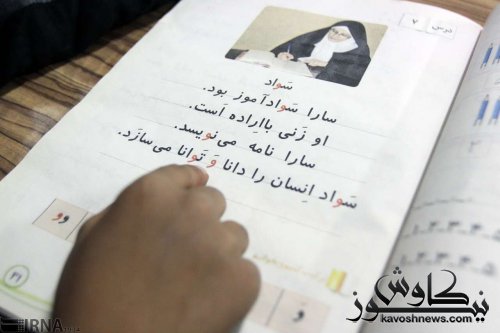 درس ۷
سَواد
سارا سَوادآموز بود.
او زَنی بااِراده اَست.
سارا نامه می‌نویسد.
سَواد اِنسان را دانا وَ تَوانا می‌سازَد.
و و
وَ
۳۱
نیکاوش نیوز
kavoshnews.com
IRNA